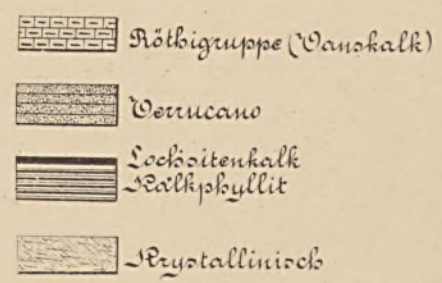 Röthigruppe (Vanskalk)
Verrucano
Lochsitenkalk
Kalkphyllit
Krystallinisch